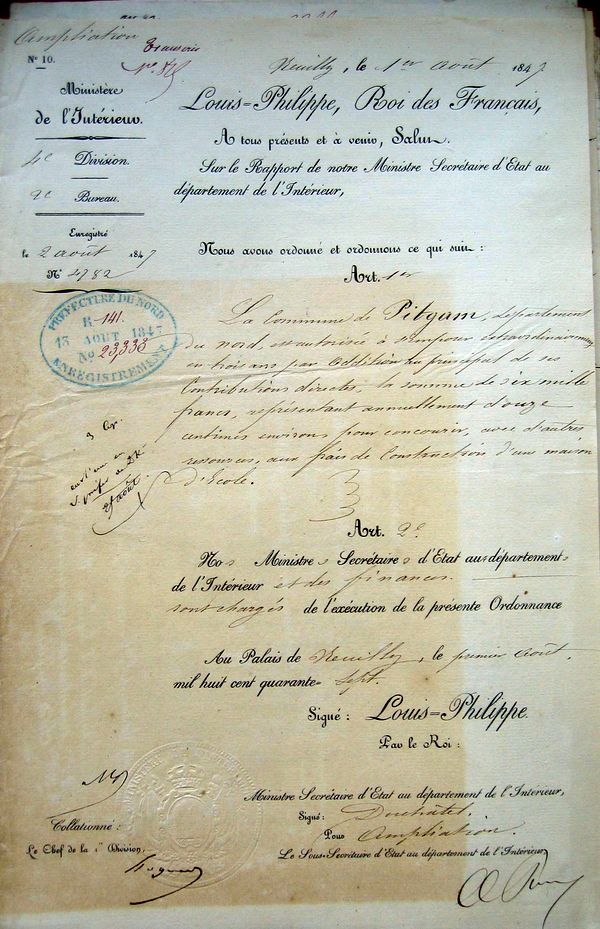 Ampliation
Transcris
Nº. 10.
Neuilly, le 1er août 1847
Ministère
de l'Intérieur.
4e Division.
2e Bureau.
Enregistré
le 2 août 1847
Nº 4782
Louis=Philippe, Roi des Français,
A tous présents et à venir, Salut.
Sur le Rapport de notre Ministre Secrétaire d'Etat au
département de l'Intérieur,
Nous avons ordonné et ordonnons ce qui suit :
Art. 1er
PREFECTURE DU NORD
R-141.
13 AOUT 1847
No 23338
ENREGISTREMENT
La Commune de Pitgam, département
du nord, est autorisée à s'imposer extraordinairement
en trois ans par addition au principal de ses
Contributions directes, la somme de six mille
francs, représentant annuellement douze
centimes environ pour concourir, avec d'autres
ressources, aux frais de Construction d'une maison
d'Ecole.
3 Cop.
août
Art. 2e
Nos Ministres Secrétaires d'Etat aux départements
de l'Intérieur et des finances
sont chargés de l'exécution de la présente Ordonnance
Au Palais de Neuilly, le premier août,
mil huit cent quarante=sept.
Signé : Louis=Philippe.
Par le Roi :
Ministre Secrétaire d'Etat au département de l'Interieur,
Signé : Duchâtel.
Pour Ampliation.
Le Sous-Secrétaire d'Etat au département de l'Intérieur
Collationné :
Le Chef de la 1re Division,